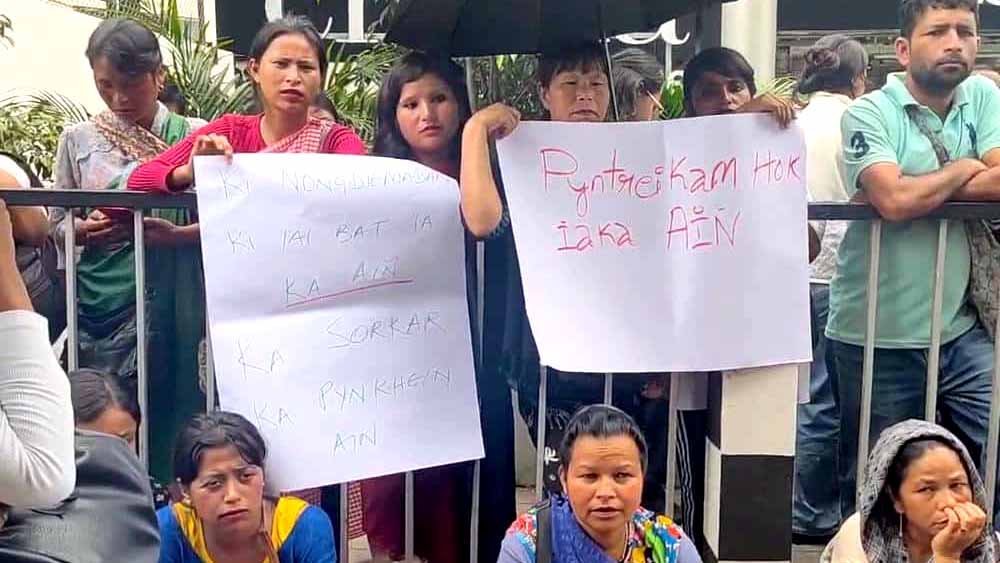 KI NONGDIEMADAN
KI IAI BAT IA
KA AIN
KA SORKAR
KA PYNKHEIN
AIN
Pyntreikam Hok
iaka AIN
3